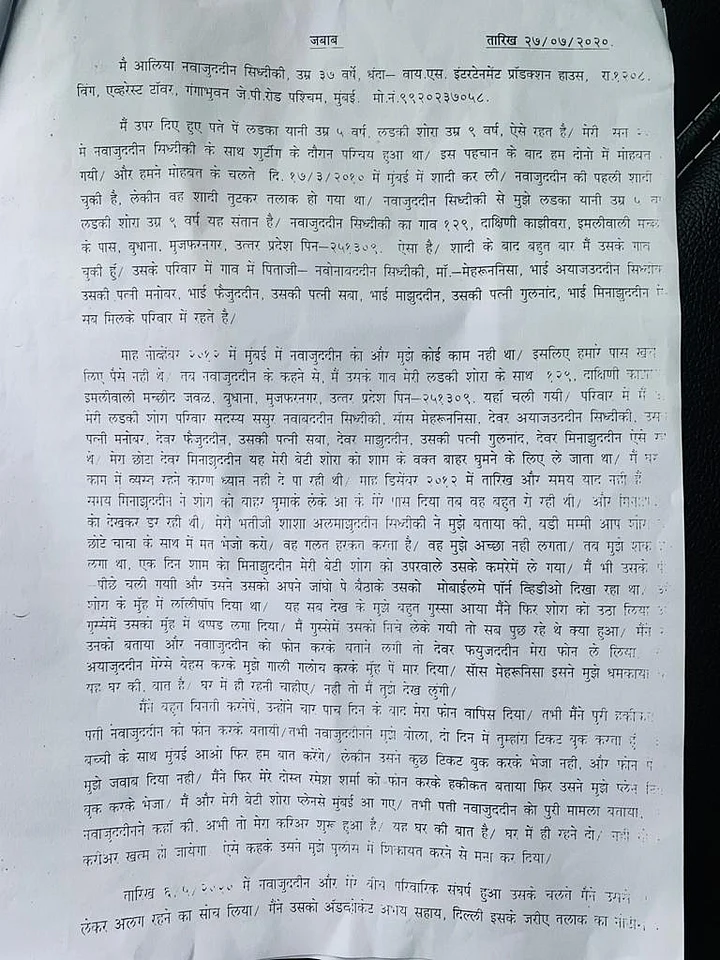 जबाब तारिख २७/०७/२०२०.
मै आलिया नवाजुददीन सिध्दीकी, उम्र ३७ वर्षे, धंदा– वाय.एस. इंटरटेनमेंट प्रॉडक्शन हाउस, रा.१२०८.
विंग, एव्हरेस्ट टॉवर, गंगाभुवन जे.पी.रोड पश्चिम, मुंबई. मो.नं.९९२०२३७०५८.
मैं उपर दिए हुए पते पें लडका यानी उम्र ५ वर्ष, लडकी शोरा उम्र ९ वर्ष, ऐसे रहत है/ मेरी सन
मे नवाजुददीन सिध्दीकी के साथ शुटींग के दौरान परिचय हुआ था/ इस पहचान के बाद हम दोनो में मोहबत
गयी/ और हमने मोहबत के चलते दि. १७/३/२०१० में मुंबई में शादी कर ली/ नवाजुददीन की पहली शादी
चुकी है, लेकीन वह शादी तुटकर तलाक हो गया था/ नवाजुददीन सिध्दीकी से मुझे लडका यानी उम्र ५
लडकी शोरा उम्र ९ वर्ष यह संतान है/ नवाजुददीन सिध्दीकी का गाव १२९, दाक्षिणी काझीवरा, इमलीवाली
के पास, बुधाना, मुजफरनगर, उत्तर प्रदेश पिन–२५१३०९. ऐसा है/ शादी के बाद बहुत बार मैं उसके गाव
चुकी हुँ/ उसके परिवार में गाव में पिताजी– नवोनाबददीन सिध्दीकी, माँ.–मेहरूननिसा, भाई अयाजउददीन
उसकी पत्नी मनोबर, भाई फैजुददीन, उसकी पत्नी सबा, भाई माझुददीन, उसकी पत्नी गुलनांद, भाई मिनाझुददीन
सब मिलके परिवार में रहते है/
माह नोव्हेंबर २०१२ में मुंबई में नवाजुददीन का और मुझे कोई काम नही था/ इसलिए हमारे पास
लिए पैसे नही थे, तब नवाजुददीन के कहने से, मैं उसके गाव मेरी लडकी शोरा के साथ १२९, दाक्षिणी
इमलीवाली मच्छीद जवळ, बुधाना, मुजफरनगर, उत्तर प्रदेश पिन–२५१३०९. यहाँ चली गयी/ परिवार में मैं
मेरी लडकी शोरा परिवार सदस्य ससुर नवाबददीन सिध्दीकी, साँस मेहरूननिसा, देवर अयाजउददीन सिध्दीकी,
पत्नी मनोबर, देवर फैजुददीन, उसकी पत्नी सबा, देवर माझुददीन, उसकी पत्नी गुलनांद, देवर मिनाझुददीन ऐसे
थे/ मेरा छोटा देवर मिनाझुददीन यह मेरी बेटी शोरा को शाम के वक्त बाहर घुमने के लिए ले जाता था/ मैं घर
काम में व्यस्त रहने कारण ध्यान नही दे पा रही थी/ माह डिसेंबर २०१२ में तारिख और समय याद नही
समय मिनाझुददीन ने शोरा को बाहर घुमाके लेके आ के मेरे पास दिया तब वह बहुत रो रही थी/ और
को देखकर डर रही थी/ मेरी भतीजी शाशा अलमाझुददीन सिध्दीकी ने मुझे बताया की, बडी मम्मी आप
छोटे चाचा के साथ में मत भेजो करो/ वह गलत हरकत करता है/ वह मुझे अच्छा नही लगता/ तब मुझे शक
लगा था, एक दिन शाम को मिनाझुददीन मेरी बेटी शोरा को उपरवाले उसके कमरेमें ले गया/ मैं भी उसके
–पीछे चली गयी और उसने उसको अपने जांघो पे बैठाके उसको मोबाईलमे पॉर्न व्हिडीओ दिखा रहा था,
शोरा के मुंह में लॉलीपॉप दिया था/ यह सब देख के मुझे बहुत गुस्सा आया मैंने फिर शोरा को उठा लिया
गुस्सेमें उसको मुंह में थप्पड लगा दिया/ मैं गुस्सेमें उसको निचे लेके गयी तो सब पुछ रहे थे क्या हुआ/ मैंने
उनको बताया और नवाजुददीन को फोन करके बताने लगी तो देवर फयुजददीन मेरा फोन ले लिया
अयाजुददीन मेरेसे बेहस करके मुझे गाली गलोच करके मुंह में मार दिया/ साँस मेहरूनिसा इसने मुझे धमकाया
यह घर की. बात है/ घर में ही रहनी चाहीए/ नही तो मैं तुझे देख लुंगी/
मैंने बहुत बिनती करनेपें, उन्होंने चार पाच दिन के बाद मेरा फोन वापिस दिया/ तभी मैंने पुरी
पती नवाजुददीन को फोन करके बतायी/तभी नवाजुददीनने मुझे बोला, दो दिन में तुम्हारा टिकट बुक करता हुँ
बच्ची के साथ मुंबई आओ फिर हम बात करेंगे/ लेकीन उसने कुछ टिकट बुक करके भेजा नही, और फोन
मुझे जवाब दिया नही/ मैंने फिर मेरे दोस्त रमेश शर्मा को फोन करके हकीकत बताया फिर उसने मुझे प्लेन
बुक करके भेजा/ मैं और मेरी बेटी शोरा प्लेनसे मुंबई आ गए/ तभी पती नवाजुददीन को पुरी मामला बताया,
नवाजुददीनने कहाँ की, अभी तो मेरा करिअर शुरू हुआ है/ यह घर की बात है/ घर में ही रहने दो/ नही
करीअर खत्म हो जायेगा. ऐसे कहके उसने मुझे पुलीस में शिकायत करने से मना कर दिया/
तारिख ६/५/२०२० में नवाजुददीन और मेरे बीच परिवारिक संघर्ष हुआ उसके चलते मैंने उससे
लेकर अलग रहने का सोच लिया/ मैंने उसको ॲडव्होकेट अभय सहाय, दिल्ली इसके जरीए तलाक का